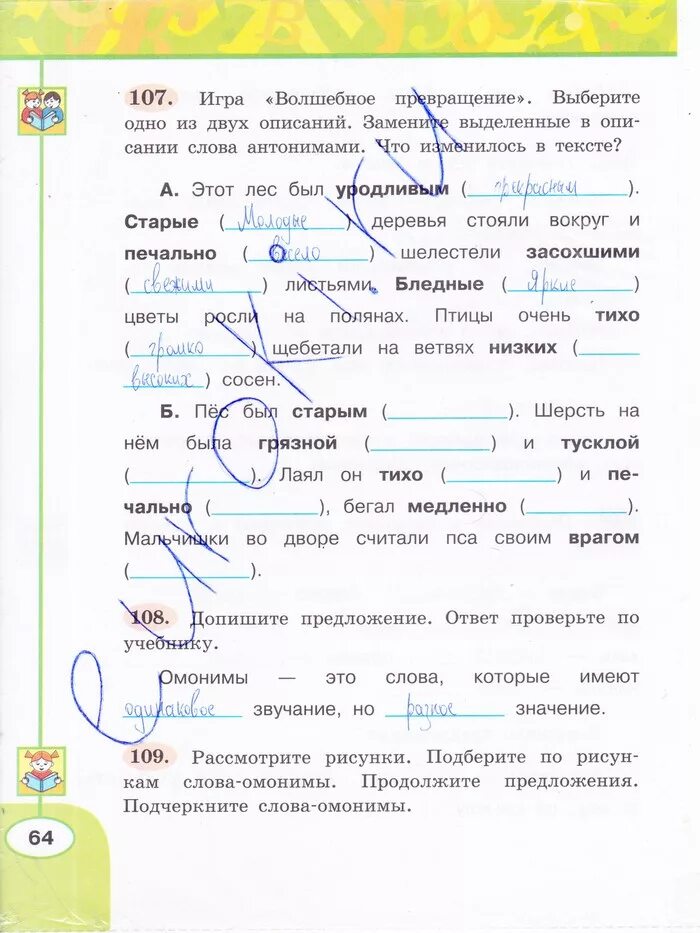 107. Игра «Волшебное превращение». Выберите
одно из двух описаний. Замените выделенные в опи-
сании слова антонимами. Что изменилось в тексте?
А. Этот лес был уродливым (прекрасным).
Старые (Молодые) деревья стояли вокруг и
печально (весело) шелестели засохшими
(свежими) листьями. Бледные (Яркие)
цветы росли на полянах. Птицы очень тихо
(громко) щебетали на ветвях низких (
высоких) сосен.
Б. Пёс был старым (            ). Шерсть на
нём была грязной (            ) и тусклой
(            ). Лаял он тихо (            ) и пе-
чально (            ), бегал медленно (            ).
Мальчишки во дворе считали пса своим врагом
(            ).
108. Допишите предложение. Ответ проверьте по
учебнику.
Омонимы — это слова, которые имеют
одинаковое звучание, но разное значение.
109. Рассмотрите рисунки. Подберите по рисун-
кам слова-омонимы. Продолжите предложения.
Подчеркните слова-омонимы.
64